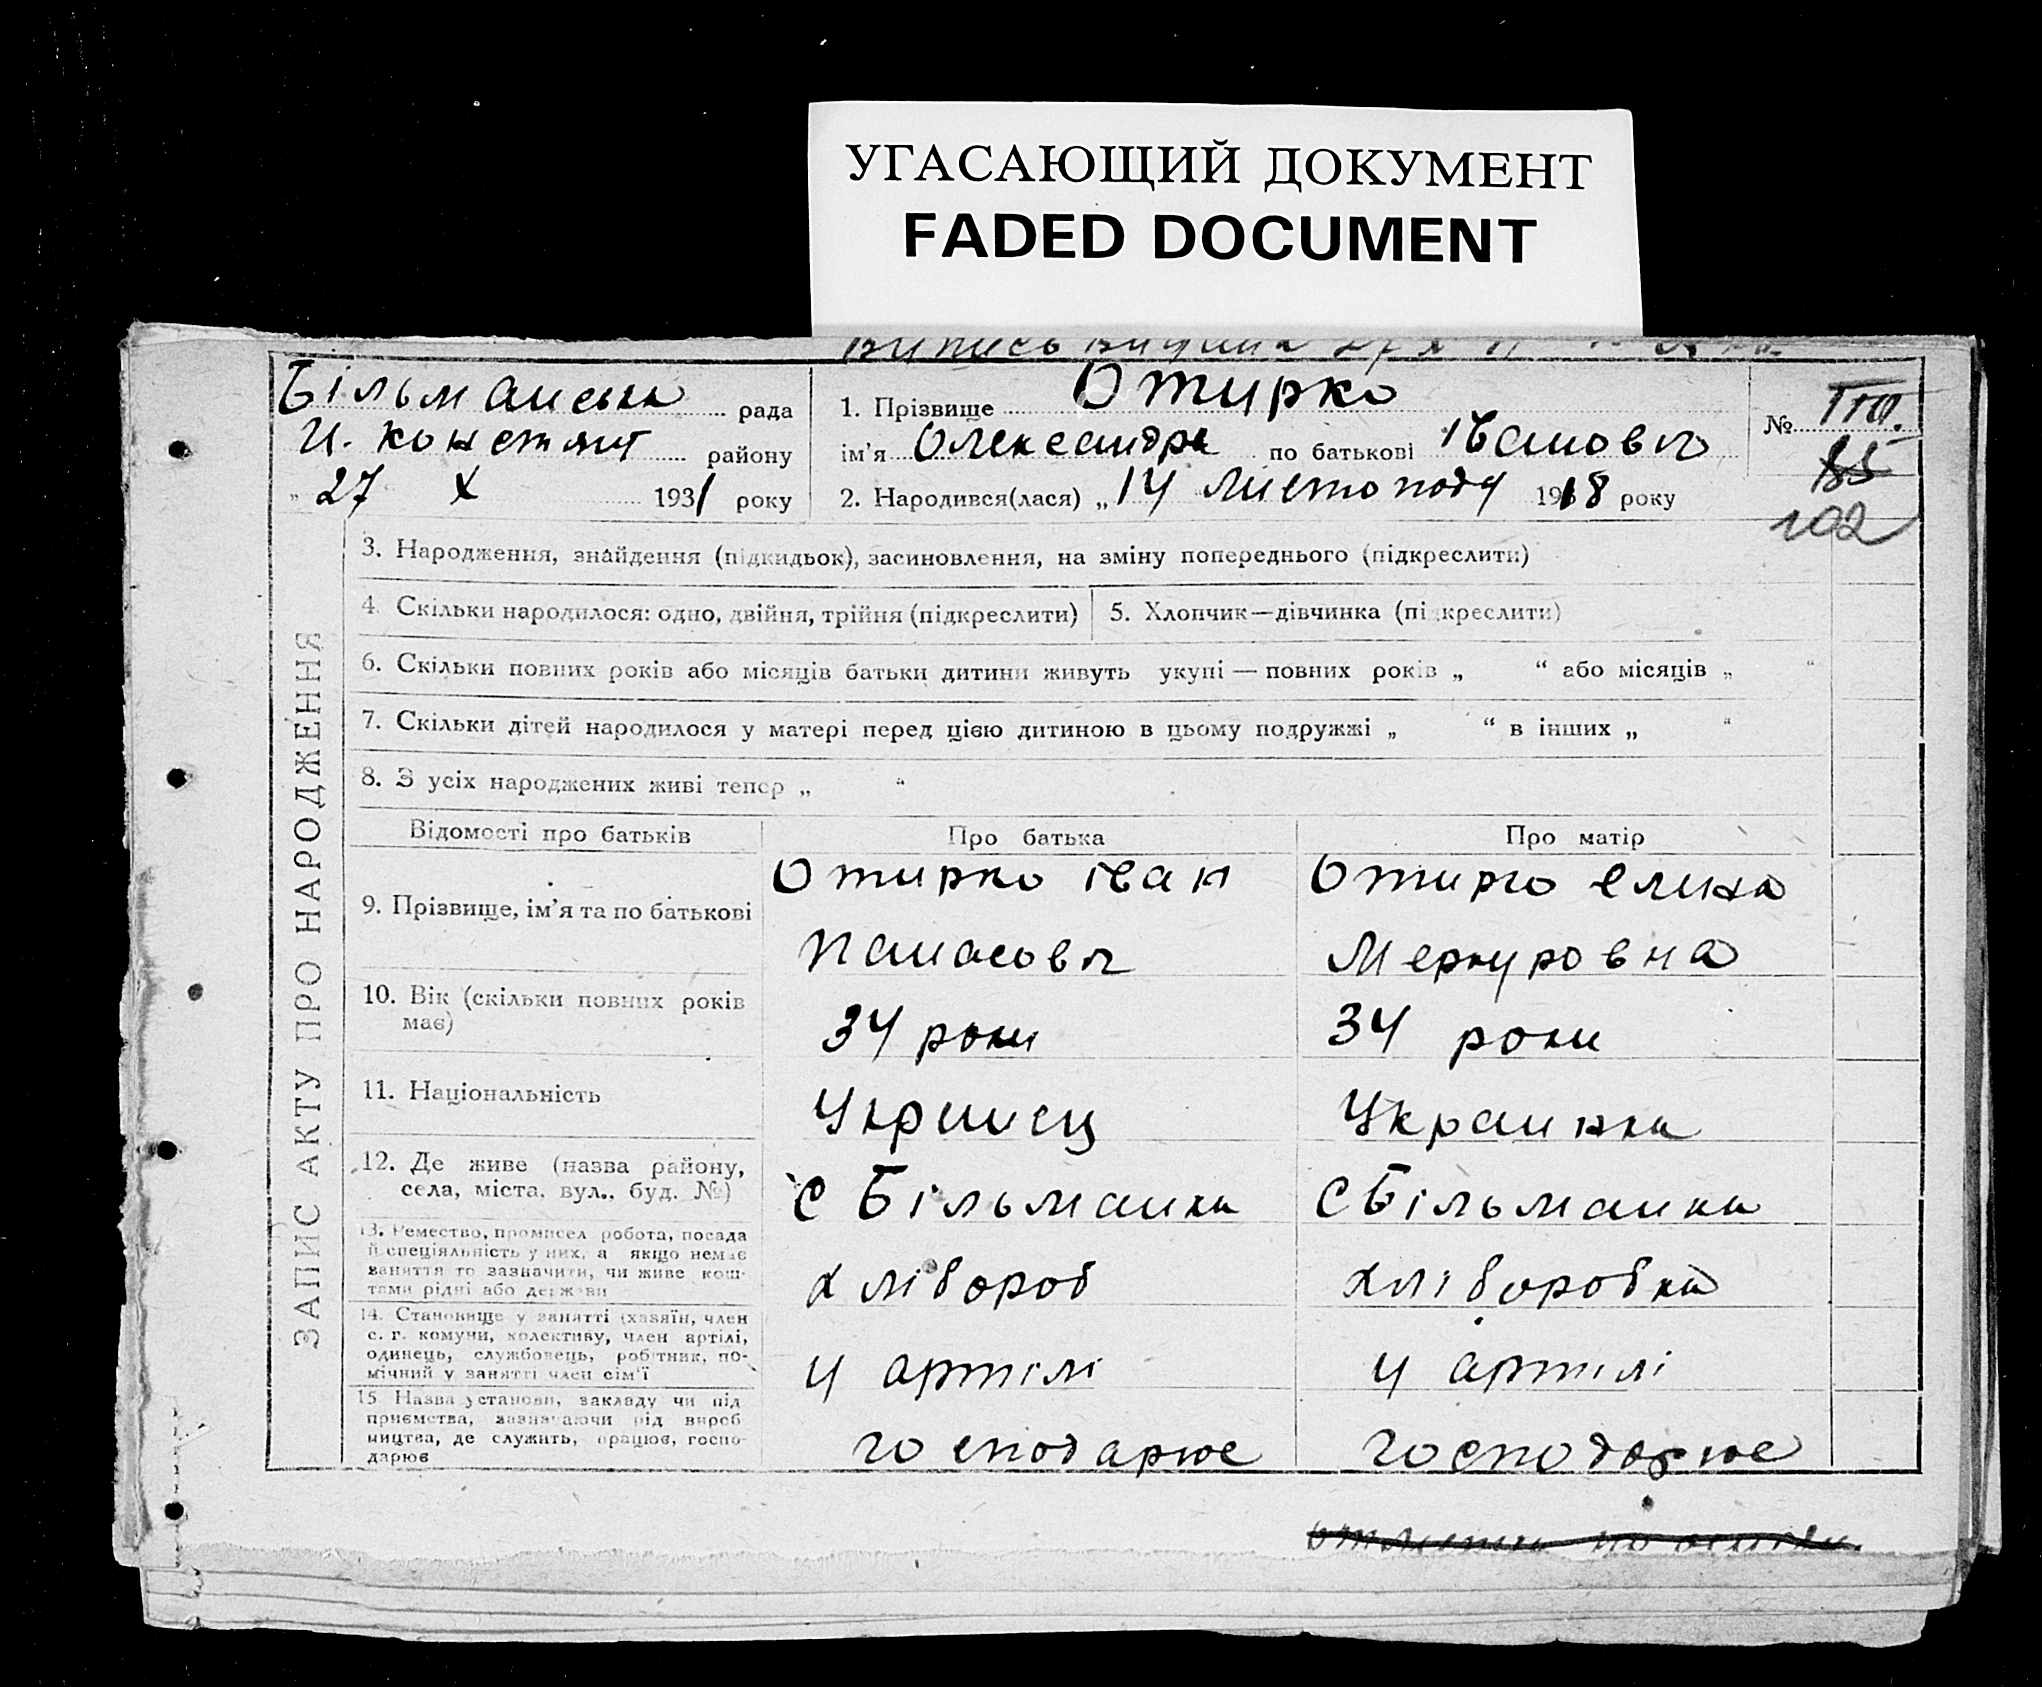 УГАСАЮЩИЙ ДОКУМЕНТ
FADED DOCUMENT
Більманська рада
И. Констянт району
" 27 X 1931 року
1. Прізвище Отирко
ім'я Олександра по батькові Івановіч
2. Народився(лася) „ 14 Листопаду 1918 року
№
85
102
ЗАПИС АКТУ ПРО НАРОДЖЕННЯ
3. Народження, знайдення (підкидьок), засиновлення, на зміну попереднього (підкреслити)
4. Скільки народилося: одно, двійня, трійня (підкреслити)
5. Хлопчик—дівчинка (підкреслити)
6. Скільки повних років або місяців батьки дитини живуть укупі — повних років „ “ або місяців „ “
7. Скільки дітей народилося у матері перед цією дитиною в цьому подружжі „ “ в інших „ “
8. З усіх народжених живі тепер „ “
Відомості про батьків Про батька Про матір
9. Прізвище, ім'я та по батькові
Отирко Іван
Панасовіч
Отирко Елина
Меркуровна
10. Вік (скільки повних років
має)
34 роки
34 роки
11. Національність
Украинец
Украинка
12. Де живе (назва району,
села, міста, вул., буд. №)
с Більманка
с Більманка
13. Ремество, промисел робота, посада
й спеціяльність у них, а якщо немає
заняття то зазначити, чи живе кош-
тами рідні або держави
хлібороб
хліборобка
14. Становище у занятті (хазяїн, член
с. г. комуни, колективу, член артілі,
одинець, службовець, робітник, по-
мічний у занятті член сім'ї
у артілі
у артілі
15 Назва установи, закладу чи під
приємства, зазначаючи рід вироб
ництва, де служить, працює, госпо-
дарює
господарює
господарює